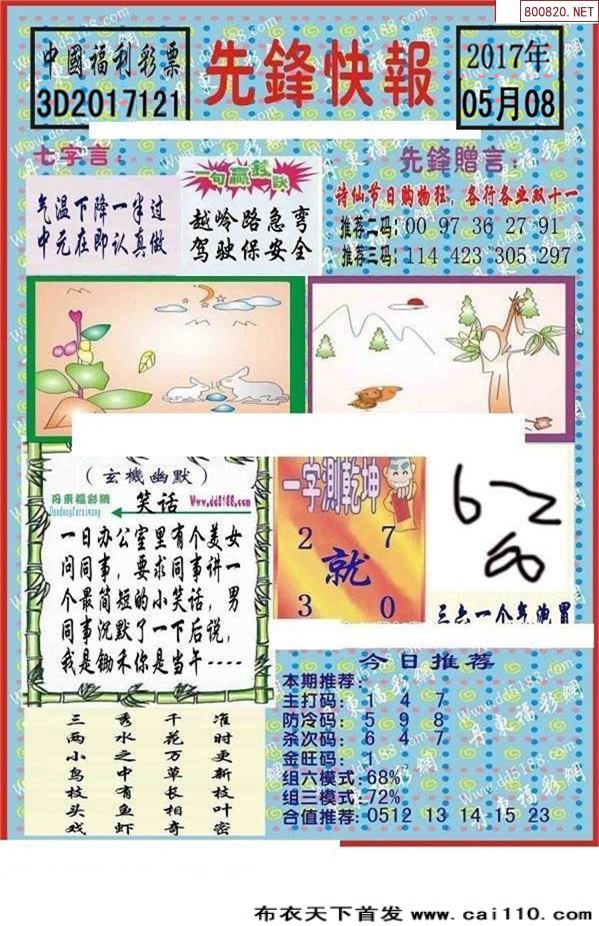 800820.NET
中國福利彩票
3D2017121
先鋒快報
2017年
05月08
七字言：
气温下降一半过
中元在即认真做
一句赢錢訣
越岭路急弯
驾驶保安全
先鋒贈言：
诗仙节日购物狂，各行各业双十一
推荐二码：00 97 36 27 91
推荐三码：114 423 305 297
（玄機幽默）
丹東福彩網
Dandongfucaiwang
笑话
Www.dd5188.com
一日办公室里有个美女
问同事，要求同事讲一
个最简短的小笑话，男
同事沉默了一下后说，
我是锄禾你是当午----
一字測乾坤
2 7
就
3 0
三六一个气泡冒
三两小鸟枝头戏
秀水之中有鱼虾
千花万草长相奇
准时更新枝叶密
今日推荐
本期推荐：
主打码： 1 4 7
防冷码： 5 9 8
杀次码： 6 4 7
金旺码： 1
组六模式：68%
组三模式：72%
合值推荐：0512 13 14 15 23
布衣天下首发 www.cai110.com